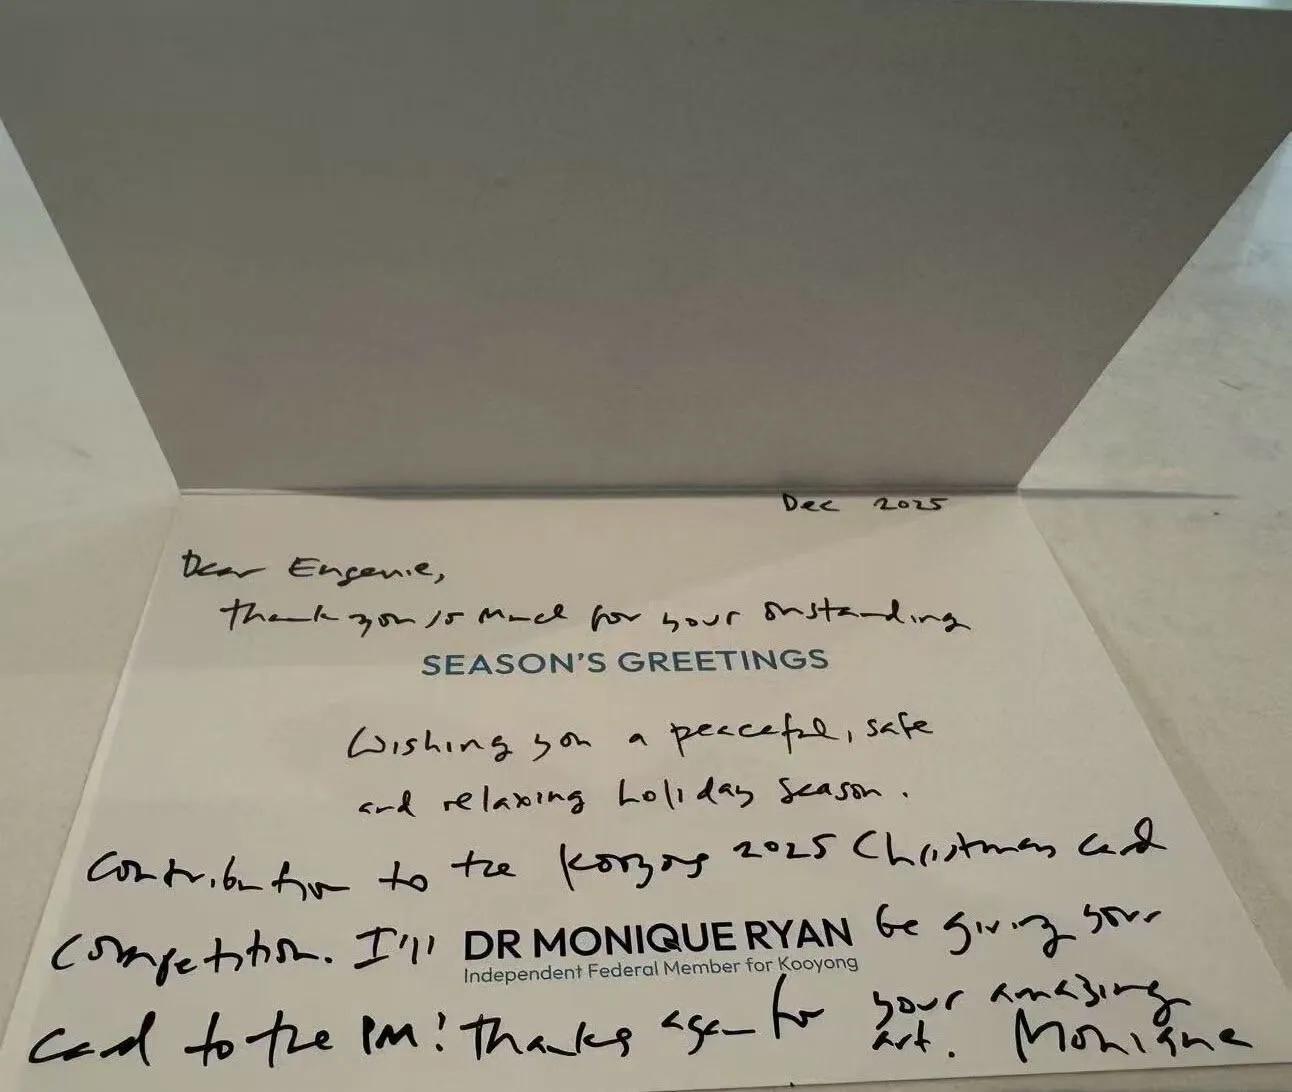 Dec 2025
Dear Eugenie,
Thank you so much for your outstanding
SEASON'S GREETINGS
Wishing you a peaceful, safe
and relaxing holiday season.
contribution to the Kooyong 2025 Christmas card
competition. I'll DR MONIQUE RYAN be giving your
Independent Federal Member for Kooyong
card to the PM! Thanks again for your amazing
art. Monique